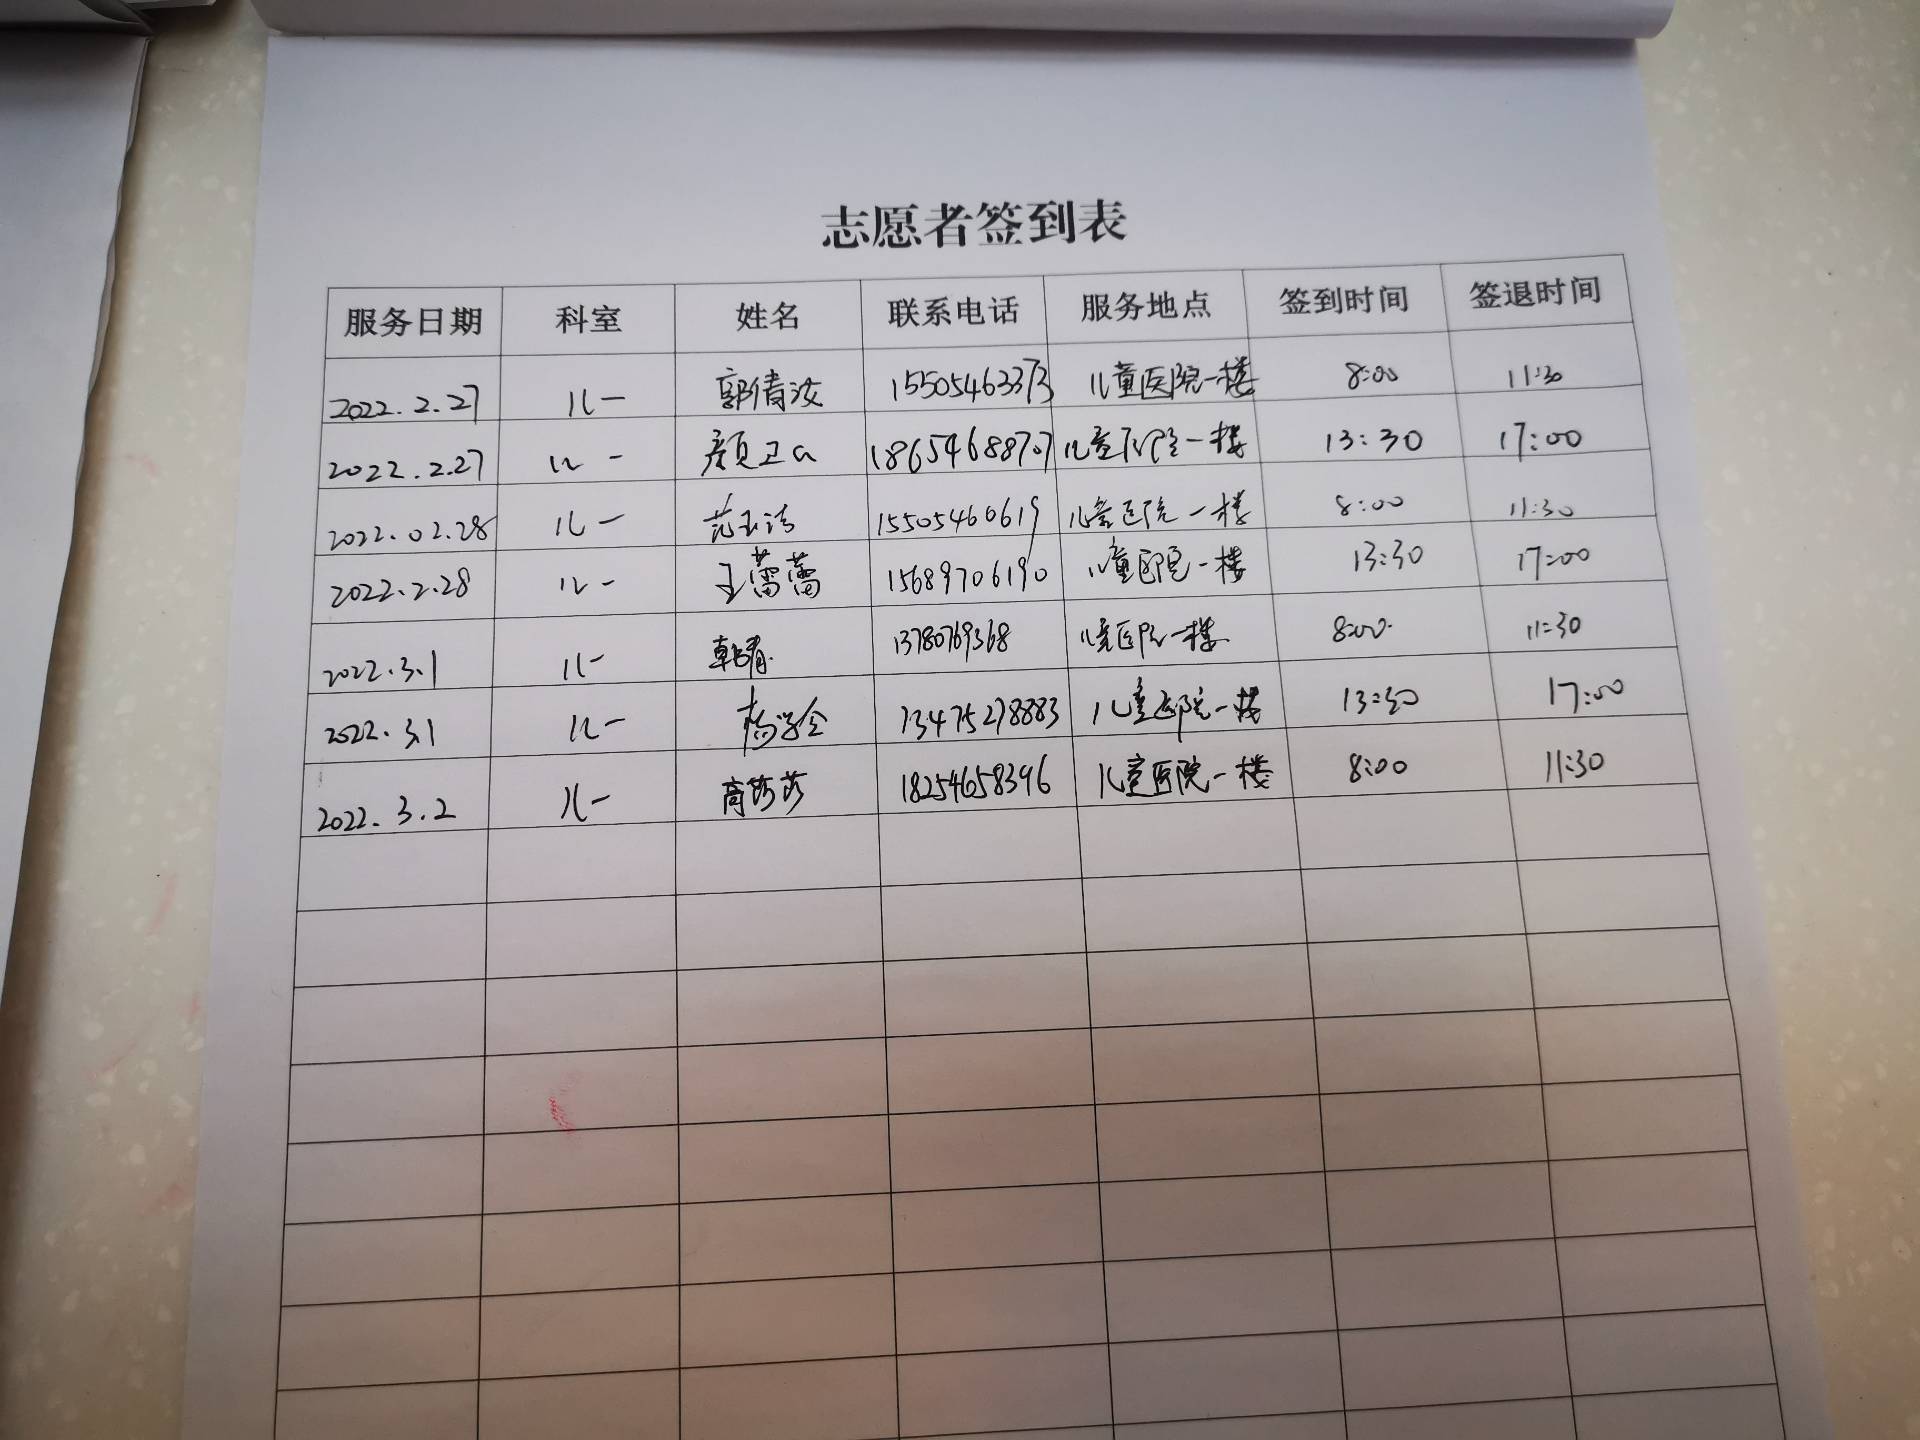 志愿者签到表
服务日期 科室 姓名 联系电话 服务地点 签到时间 签退时间
2022.2.27 儿一 郭倩汝 15505463373 儿童医院一楼 8:00 11:30
2022.2.27 儿一 颜卫 18654688707 儿童医院一楼 13:30 17:00
2022.02.28 儿一 范玉洁 15505460619 儿童医院一楼 8:00 11:30
2022.2.28 儿一 王蕾蕾 15689706190 儿童医院一楼 13:30 17:00
2022.3.1 儿一 韩晴 13780769368 儿童医院一楼 8:00 11:30
2022.3.1 儿一 杨学会 13475278883 儿童医院一楼 13:30 17:00
2022.3.2 儿一 高莎莎 18254658396 儿童医院一楼 8:00 11:30